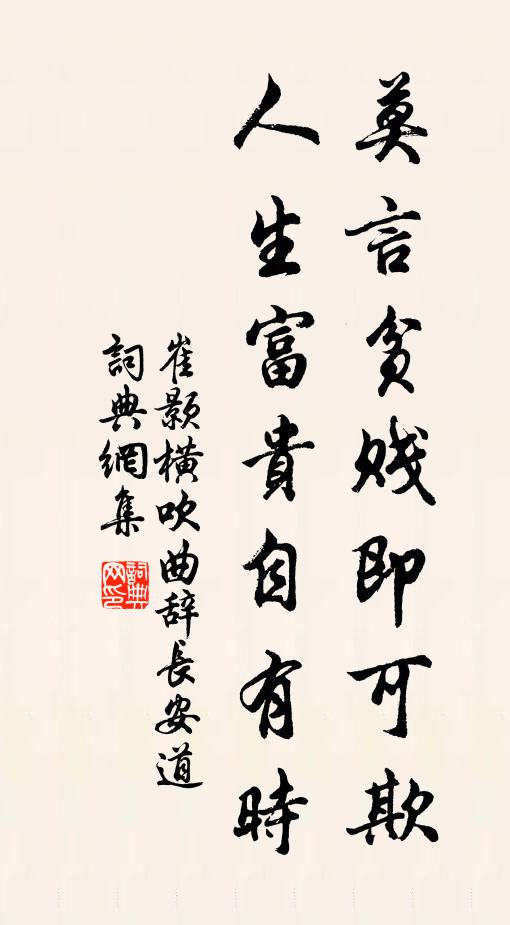 莫言貧賤即可欺
人生富貴自有時
崔顥橫吹曲辭長安道
詞典網集
詞典网印